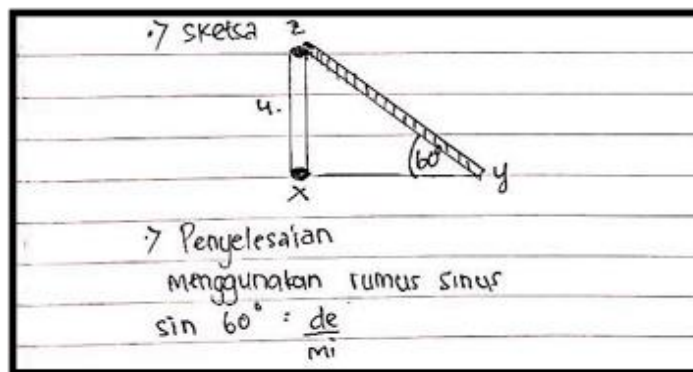 ·> Sketsa
z
4.
60°
x
y
·> Penyelesaian
menggunakan rumus sinus
sin 60° = de
mi